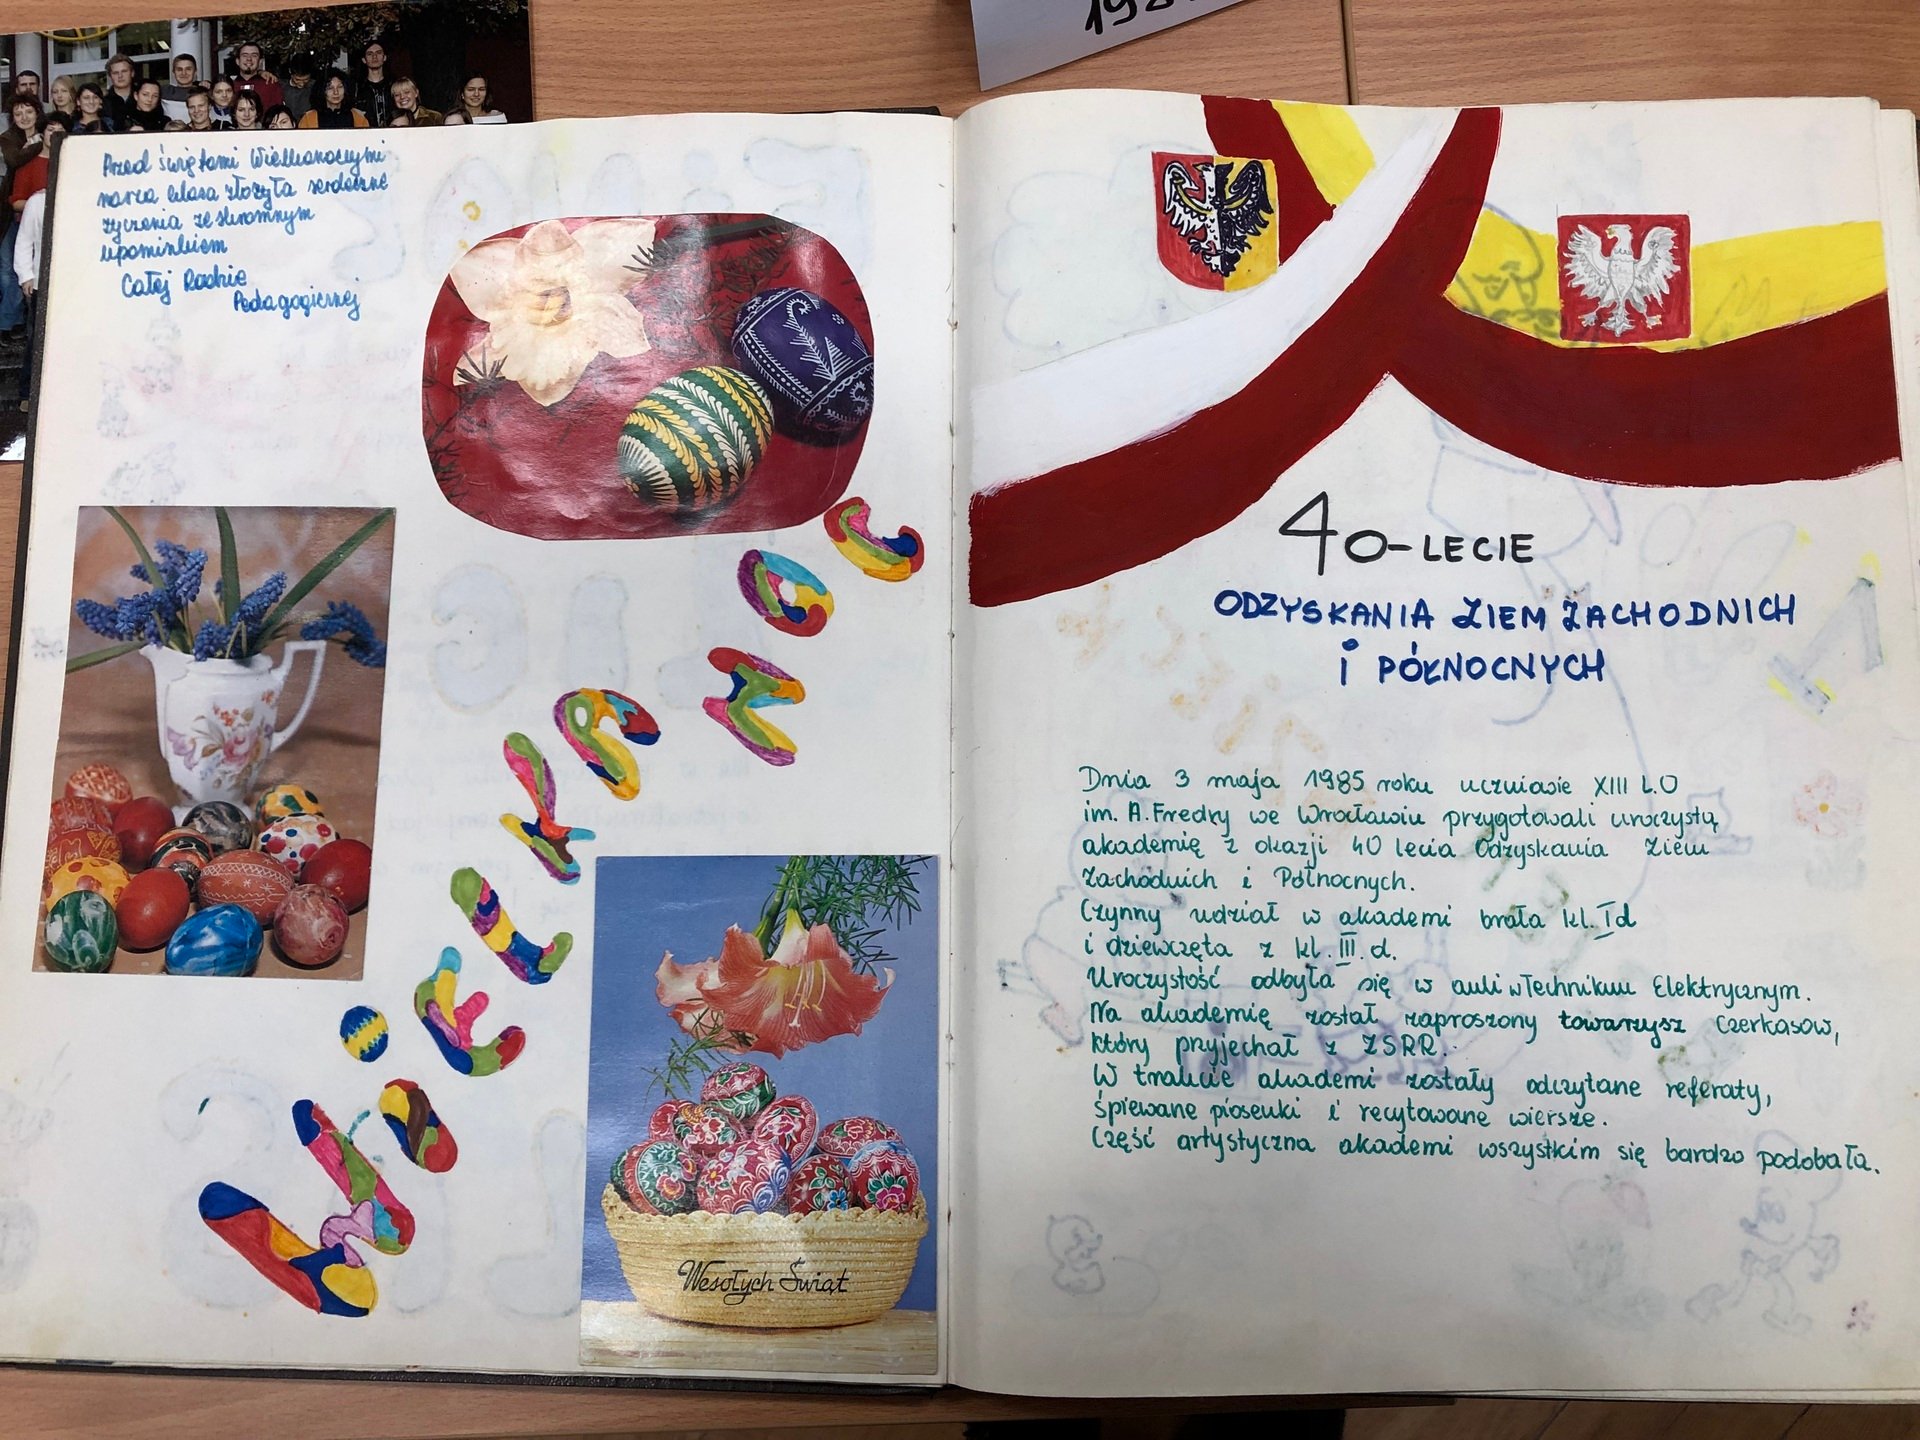 198
Przed świętami Wielkanocnymi
nasza klasa złożyła serdeczne
życzenia ze skromnym
upominkiem
Całej Radzie
Pedagogicznej
WIELKANOC
Wesołych Świąt
40-LECIE
ODZYSKANIA ZIEM ZACHODNICH
i PÓŁNOCNYCH
Dnia 3 maja 1985 roku uczniowie XIII L.O
im. A. Fredry we Wrocławiu przygotowali uroczystą
akademię z okazji 40 lecia Odzyskania Ziem
Zachodnich i Północnych.
Czynny udział w akademi brała kl. I d
i dziewczęta z kl. III. d.
Uroczystość odbyła się w auli w Technikum Elektrycznym.
Na akademię został zaproszony towarzysz Czerkasow,
który przyjechał z ZSRR.
W trakcie akademi zostały odczytane referaty,
śpiewane piosenki i recytowane wiersze.
Część artystyczna akademi wszystkim się bardzo podobała.